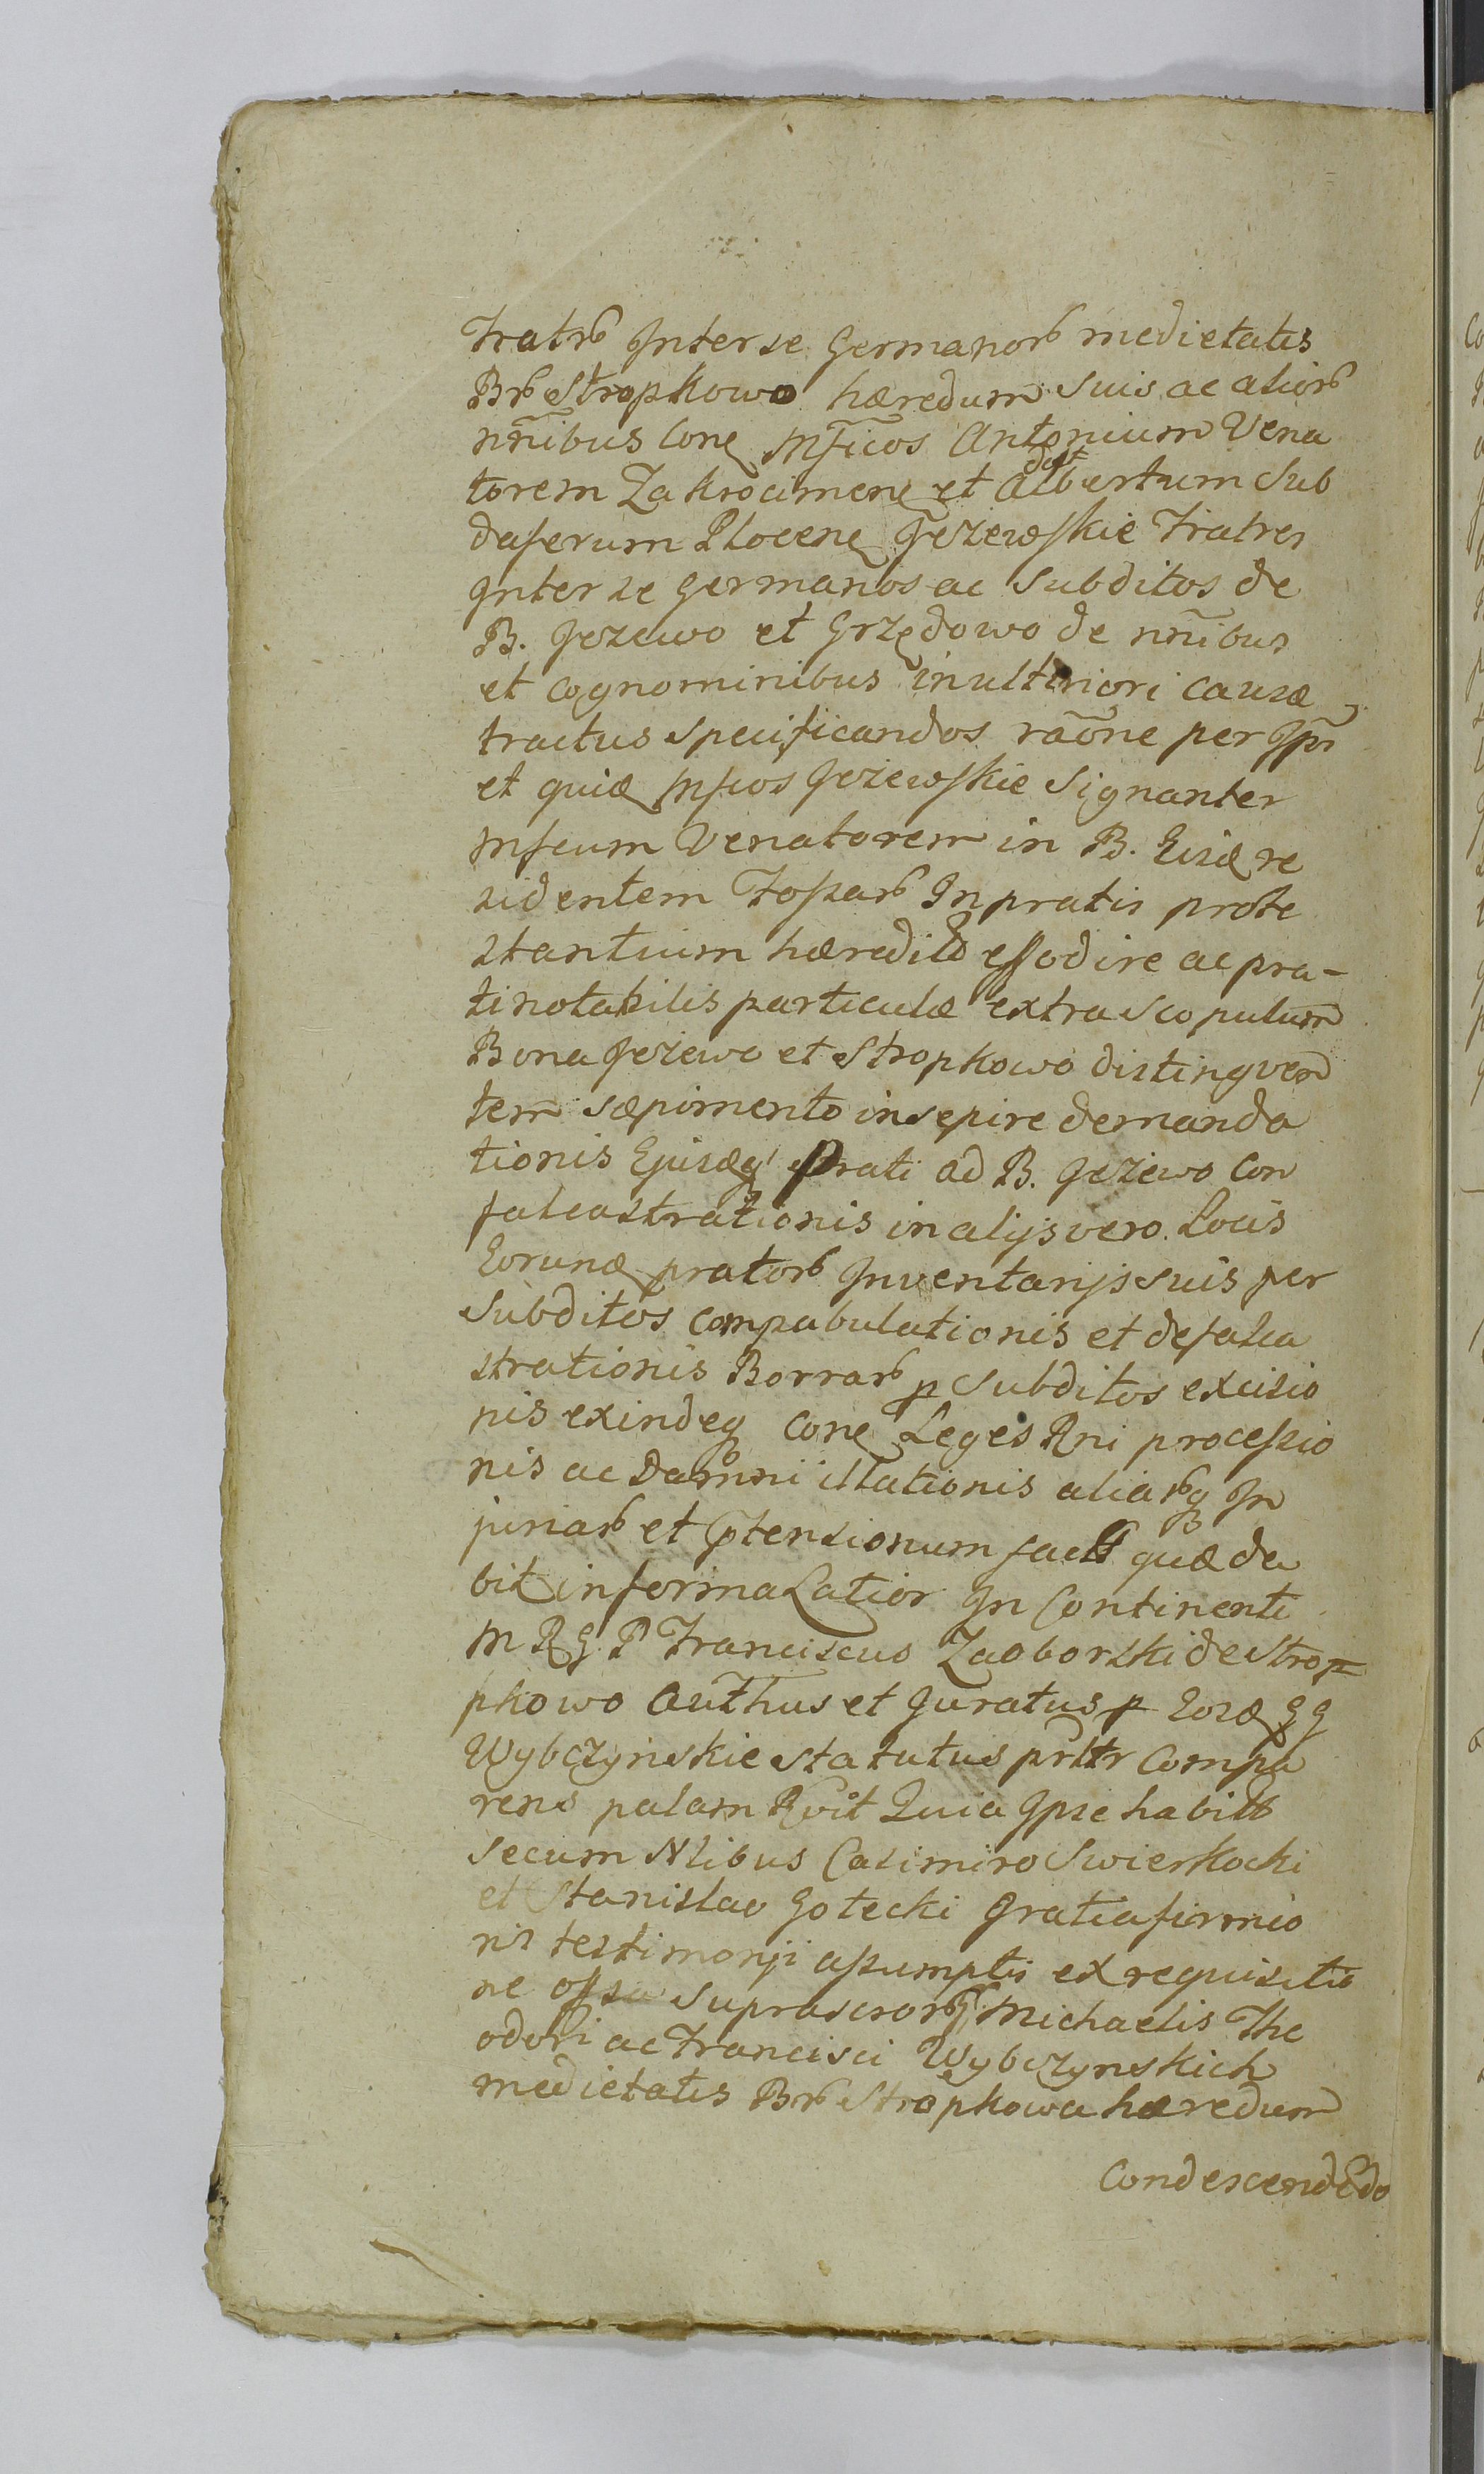 Fratrꝝ Inter se Germanorꝝ medietatis
Brꝝ Stropkowo hæredum suis ac alior̄ꝝ
nn̄ibus Conꝭ Mf̃icos Antonium Vena
torem Zakrocimenꝭ et Albertum Sub
daferum Plocenꝭ Jeżewskie Fratres
Inter se Germanos ac Subditos de
B. Jeżewo et Grzędowo de nn̄ibus
et cognominibus in ulteriori causæ
tractus specificandos raõne per Ip̃s
et quidꝭ Mfcos Jeżewskie Signanter
Mfcum Venatorem in B. Eisdꝭ re
sidentem Fossarꝝ In pratis prote
stantium hæredit̃ effodire ac pra-
ti notabilis particulæ extra Scopulum
Bona Jeżewo et Stropkowo distingven
tem sæpimento insepire demanda
tionis Ejusdꝗ Prati ad B. Jeżewo Con
falcastrationis in alijs vero Locis
Eorundꝭ pratorꝝ Inventarijs suis per
Subditos compabulationis et defalca
strationis Borrarꝝ ꝑ Subditos excisio
nis exindeꝗ Conꝭ Leges Rni processio
nis ac Damni illationis aliarꝝꝗ In
juriarꝝ et p̃tensionum fact̃ quæ da
bit in forma Latior In Continenti
M R G P Franciscus Zaoborski de Strop
pkowo Authus et Juratus ꝑ Eosdꝭ GG
Wybczynskie statutus prltr Compa
rens palam Rvit Quia Ipse habitꝭ
secum Nlibus Casimiro Swierkocki
et Stanislao Gołecki Gratia firmio
ris testimonij assumptis ex requisitio
ne offsa suprascrorꝝ Michaelis The
odori ac Francisci Wybczynskich
medietatis Brꝝ Stropkowa hæredum
Condescendẽdo